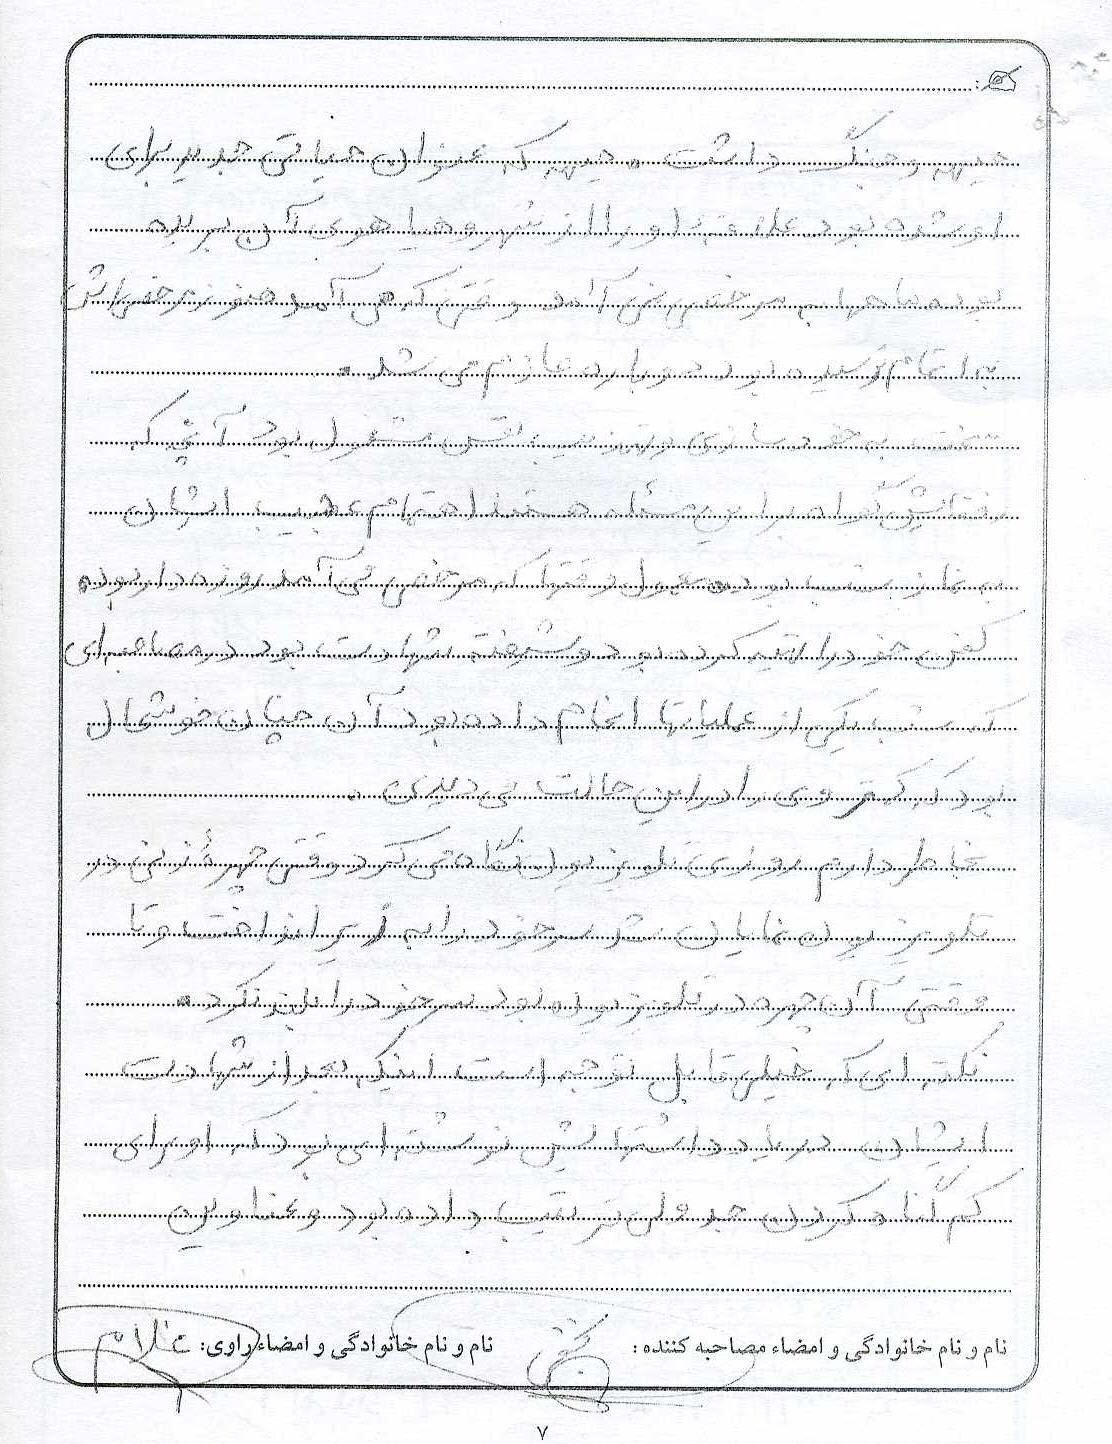 جبهه و جنگ داشت . جبهه که عنوان حیاتی جدید برای
او شده بود علاقه او را از شهر و هیاهوی آن بریده
بود ماهها به مرخصی نمی آمد وقتی که می آمد هنوز مرخصی اش
به اتمام نرسیده بود دوباره عازم می شد .
سخت به خودسازی و تهذیب نفس مشغول بود آنچه که
رفقایش گواه بر این مسئله هستند اهتمام عجیب ایشان
به نماز شب بود معمول وقتها که مرخصی می آمد روزه دار بود
کفن خود را تهیه کرده بود و شیفته شهادت بود در مصاحبه ای
که شب یکی از عملیاتها انجام داده بود آن چنان خوشحال
بود که کمتر وی را در این حالت می دیدی .
بخاطر دارم روزی تلویزیون نگاه می کرد وقتی چهرۀ زنی در
تلویزیون نمایان شد سر خود را به زیر انداخت و تا
وقتی آن چهره در تلویزیون بود سر خود را بلند نکرد .
نکته ای که خیلی قابل توجه است اینکه بعد از شهادت
ایشان در یادداشتهایش نوشته ای بود که او برای
کم گناه کردن جدولی ترتیب داده بود و عناوین
نام و نام خانوادگی و امضاء مصاحبه کننده : نام و نام خانوادگی و امضاء راوی: غلام
۷